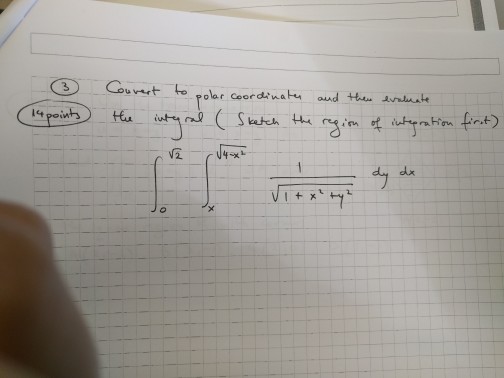 ③ Convert to polar coordinates and then evaluate
14 points the integral ( Sketch the region of integration first)
∫₀^√2 ∫ₓ^√(4-x²) 1/√(1 + x² + y²) dy dx